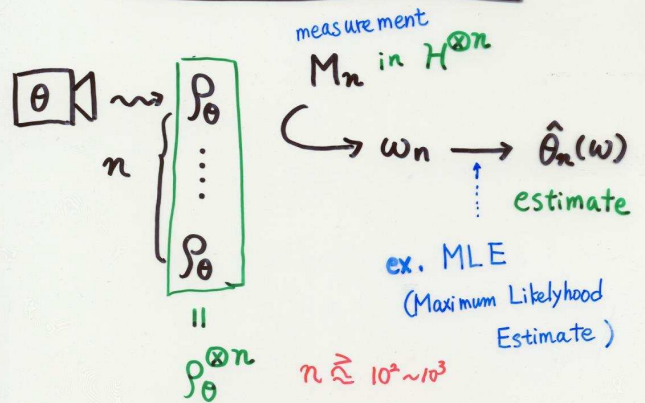 measurement
Mn in H⊗n
θ
ρθ
n
⋮
ρθ
ωn → θ̂n(ω)
estimate
ex. MLE
(Maximum Likelyhood
Estimate)
=
ρθ⊗n
n ≳ 10² ~ 10³